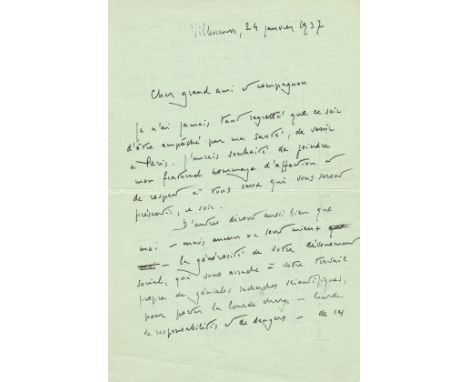 Villeneuve, 24 janvier 1937
Cher grand ami & compagnon
Je n'ai jamais tant regretté que ce soir
d'être empêché par ma santé, de venir
à Paris. J'aurais souhaité de joindre
mon fraternel hommage d'affection &
de respect à tous ceux qui vous seront
présentés, ce soir.
D'autres diront aussi bien que
moi – mais aucun ne sent mieux que
– la générosité de votre dévouement
social, qui vous arrache à votre travail
propre de géniales recherches scientifiques,
pour porter la lourde charge – lourde
de responsabilités & de dangers – de ces